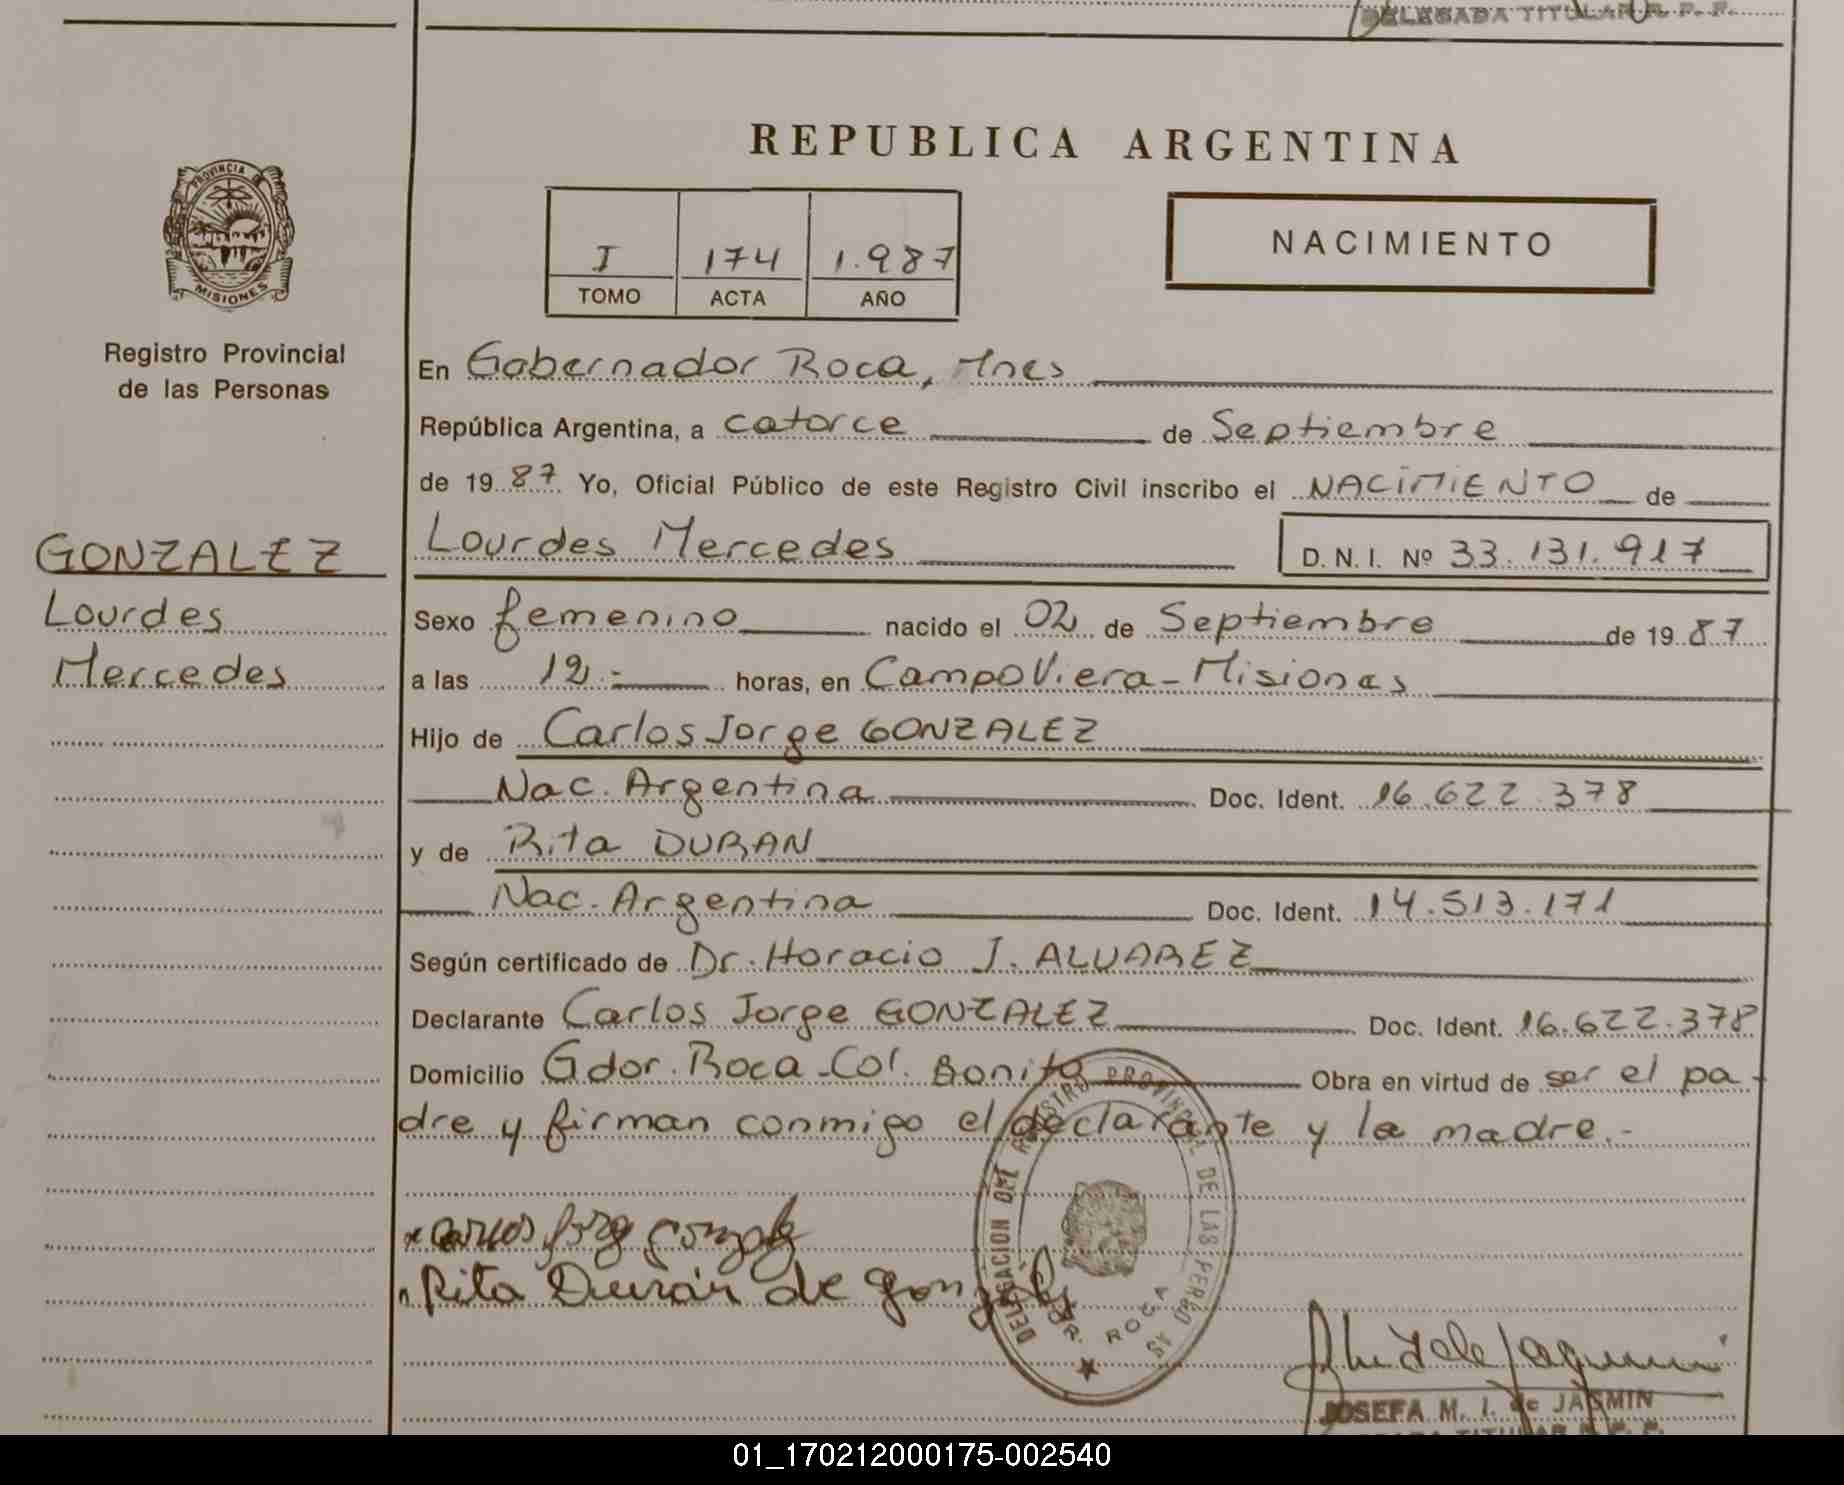 DELEGADA TITULAR R. P. P.
REPUBLICA ARGENTINA
PROVINCIA DE
MISIONES
Registro Provincial
de las Personas
I 174 1.987
TOMO ACTA AÑO
NACIMIENTO
En Gobernador Roca, Mnes
República Argentina, a catorce de Septiembre
de 19 87 Yo, Oficial Público de este Registro Civil inscribo el NACIMIENTO de
GONZALEZ
Lourdes
Mercedes
Lourdes Mercedes D. N. I. Nº 33.131.917
Sexo femenino nacido el 02 de Septiembre de 19 87
a las 12.- horas, en Campo Viera - Misiones
Hijo de Carlos Jorge GONZALEZ
Nac. Argentina Doc. Ident. 16.622.378
y de Rita DURAN
Nac. Argentina Doc. Ident. 14.513.171
Según certificado de Dr. Horacio J. ALVAREZ
Declarante Carlos Jorge GONZALEZ Doc. Ident. 16.622.378
Domicilio Gdor. Roca - Col. Bonito Obra en virtud de ser el pa-
dre y firman conmigo el declarante y la madre.-
Carlos Jorge Gonzalez
Rita Durán de Gonzalez
DELEGACION DEL REGISTRO PROVINCIAL DE LAS PERSONAS
GDR. ROCA
JOSEFA M. I. de JASMIN
DELEGADA TITULAR R. P. P.
01_170212000175-002540